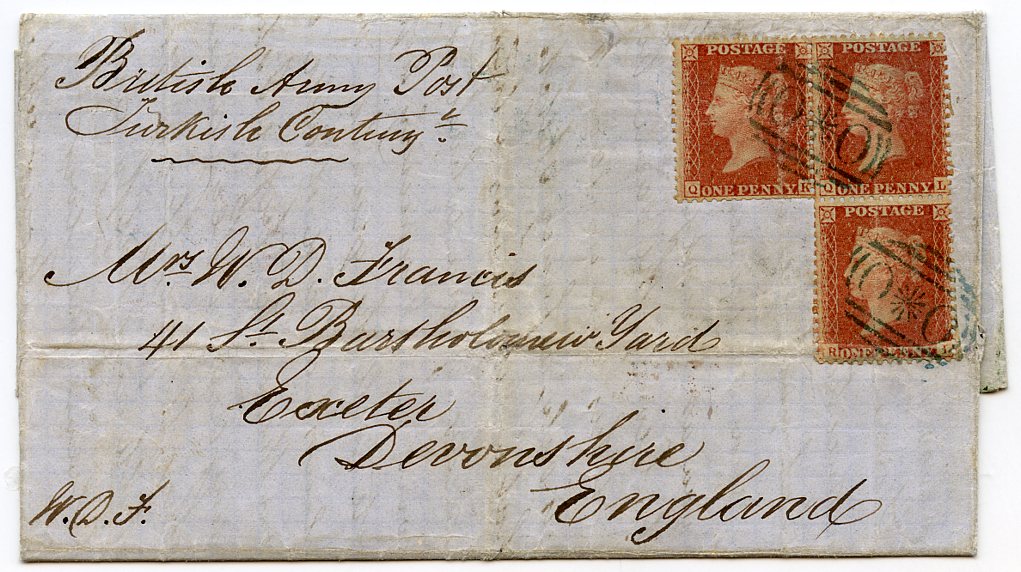 British Army Post
Turkish Conting.t
POSTAGE
Q ONE PENNY K
POSTAGE
Q ONE PENNY L
POSTAGE
R ONE PENNY L
O*O
O*O
Mrs W. D. Francis
41 St. Bartholomew Yard
Exeter
Devonshire
England
W. D. F.